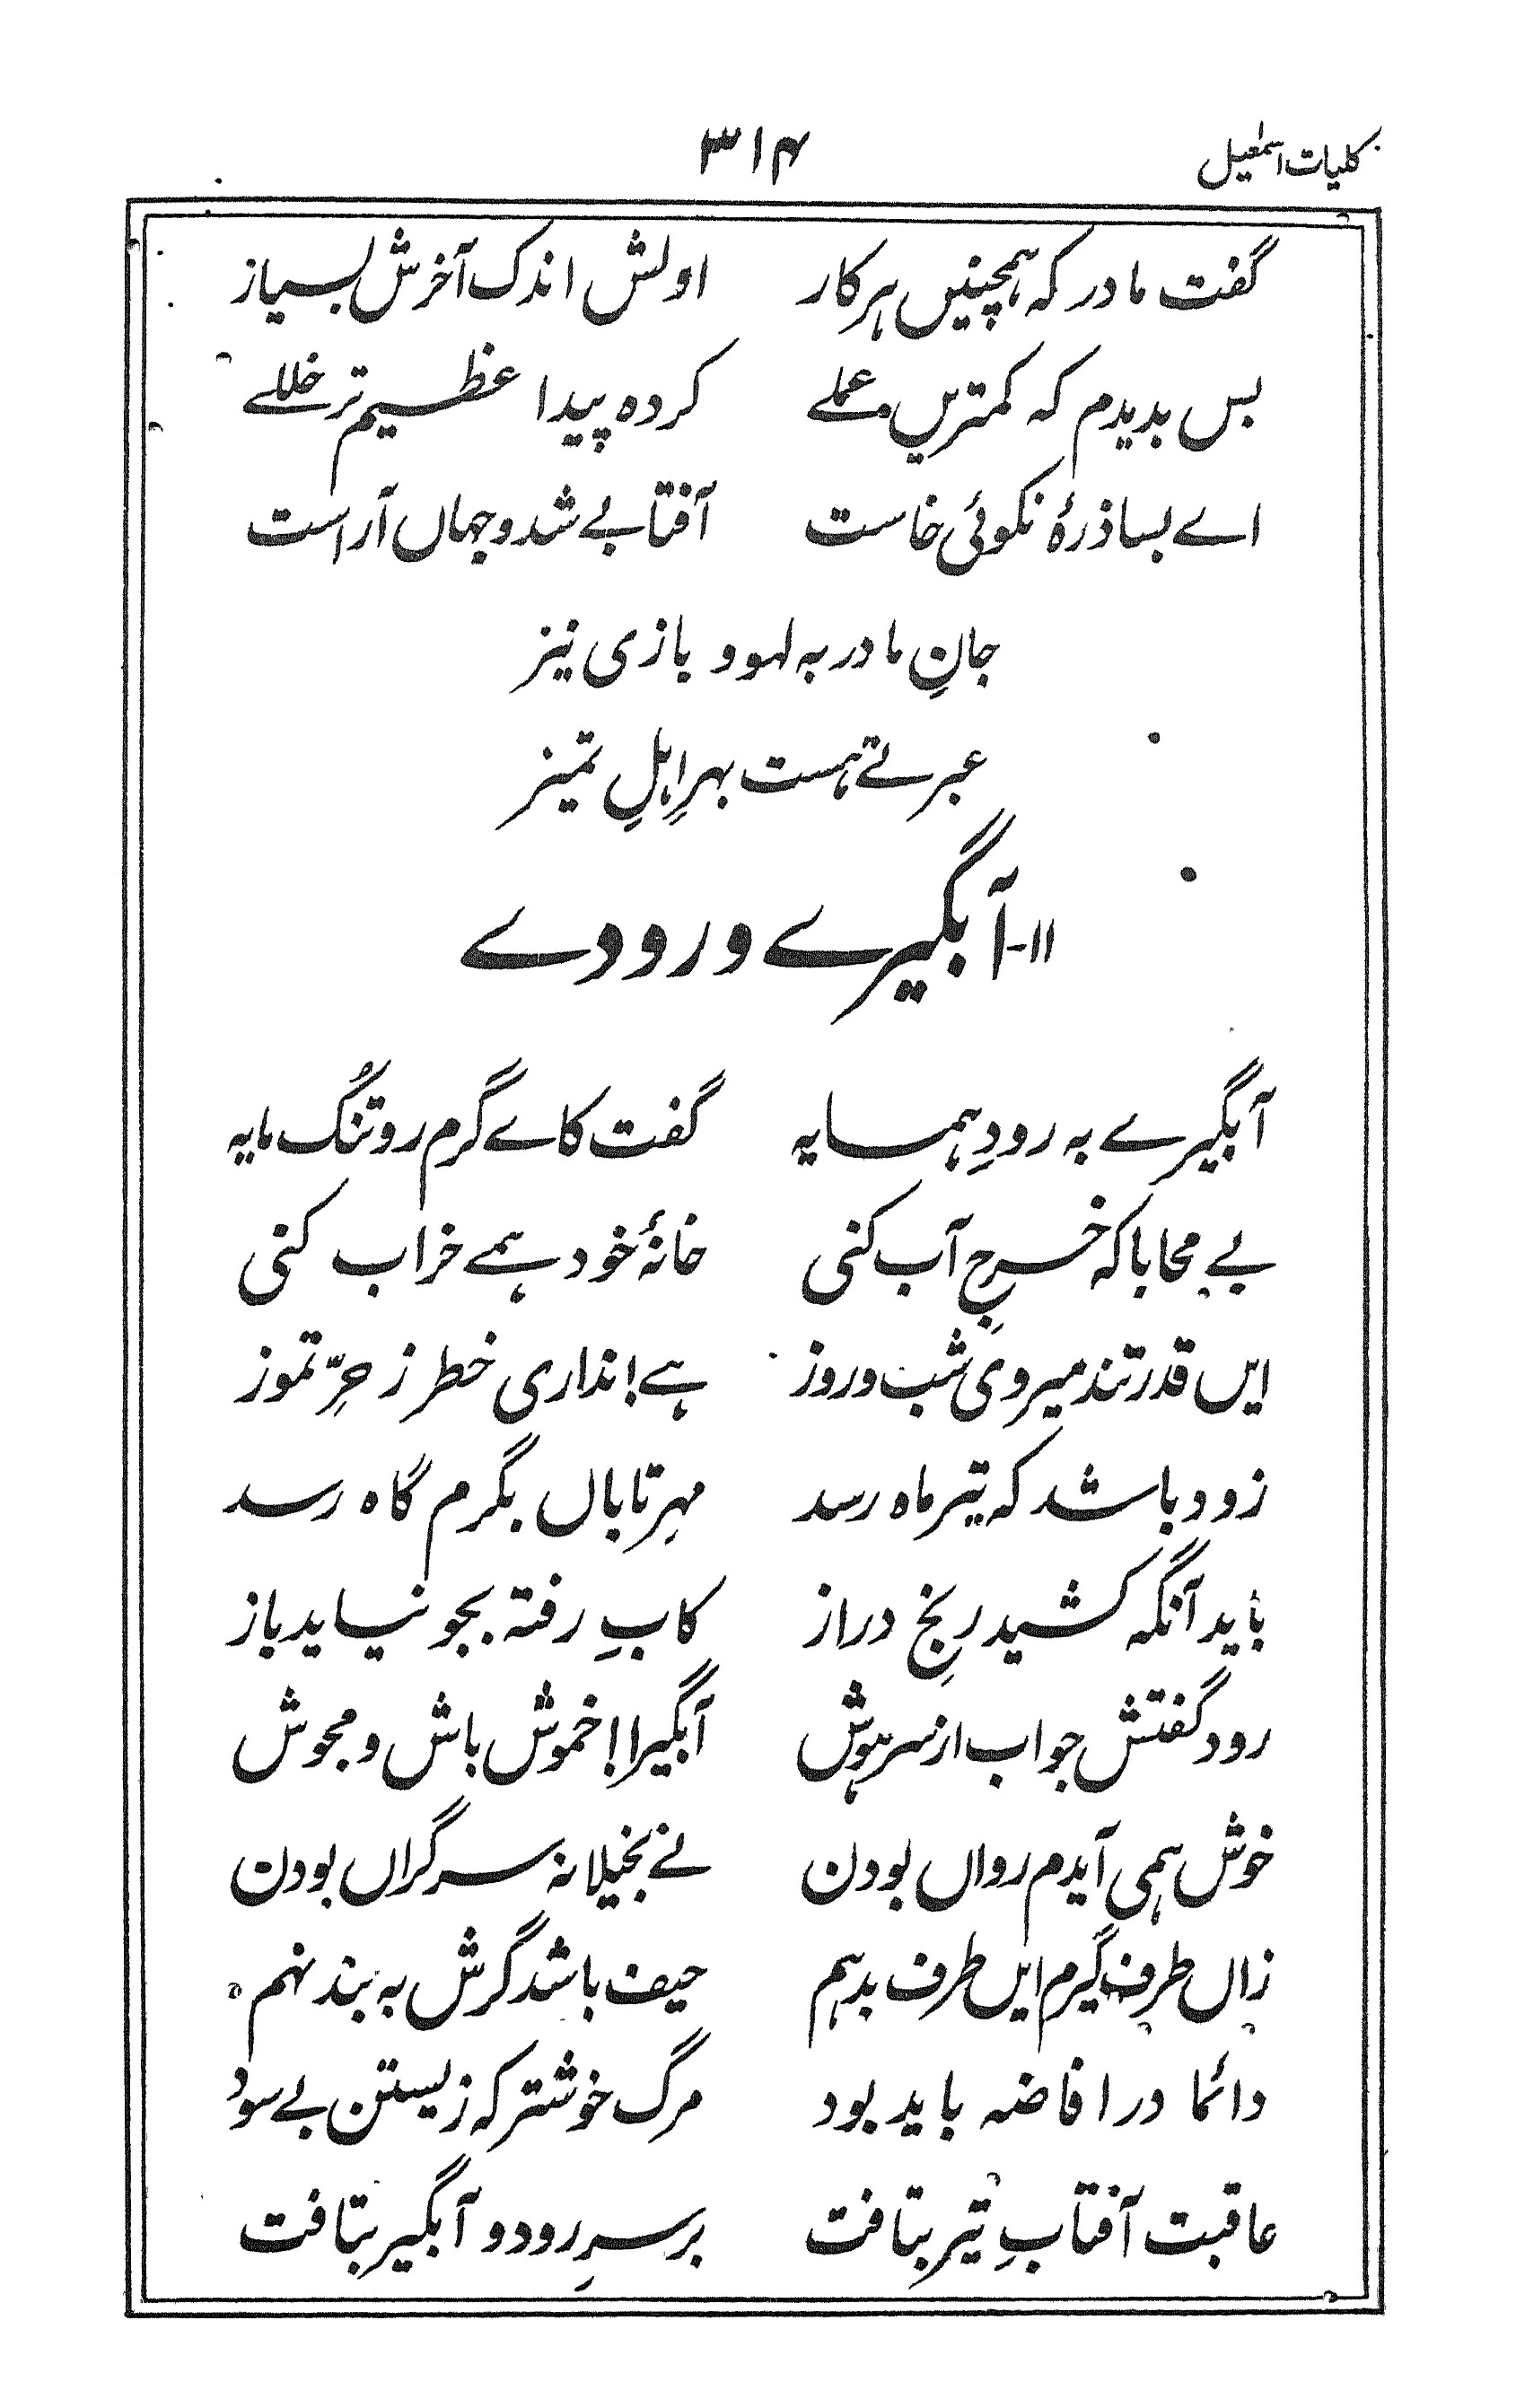 کلیات اسمٰعیل ۳۱۴
گفت مادر کہ ہمچنیں ہر کار اولش اندک آخرش بسیار
بس بدیدم کہ کمتریں عملے کردہ پیدا عظیم تر خللے
اے بسا ذرۂ نکوئی خاست آفتابے شد و جہاں آراست
جانِ مادر بہ لہو و بازی نیز
عبرتے ہست بہرِ اہلِ تمیز
۱۱- آبگیرے و رودے
آبگیرے بہ رودِ ہمسایہ گفت کاے گرم رو تنُک مایہ
بے محابا کہ خرجِ آب کنی خانۂ خود ہمے خراب کنی
ایں قدر تند میروی شب و روز ہے! نداری خطر ز حرِّ تموز
زود باشد کہ تیر ماہ رسد مہرِ تاباں بگرم گاہ رسد
باید آنگہ کشید رنجِ دراز کابِ رفتہ بجو نیاید باز
رود گفتش جواب از سرِ ہوش آبگیرا! خموش باش و مجوش
خوش ہمی آیدم رواں بودن نے بخیلانہ سر گراں بودن
زاں طرف گیرم ایں طرف بدہم حیف باشد گرش بہ بند نہم
دائما در افاضہ باید بود مرگ خوشتر کہ زیستن بے سود
عاقبت آفتابِ تیر بتافت بر سرِ رود و آبگیر بتافت